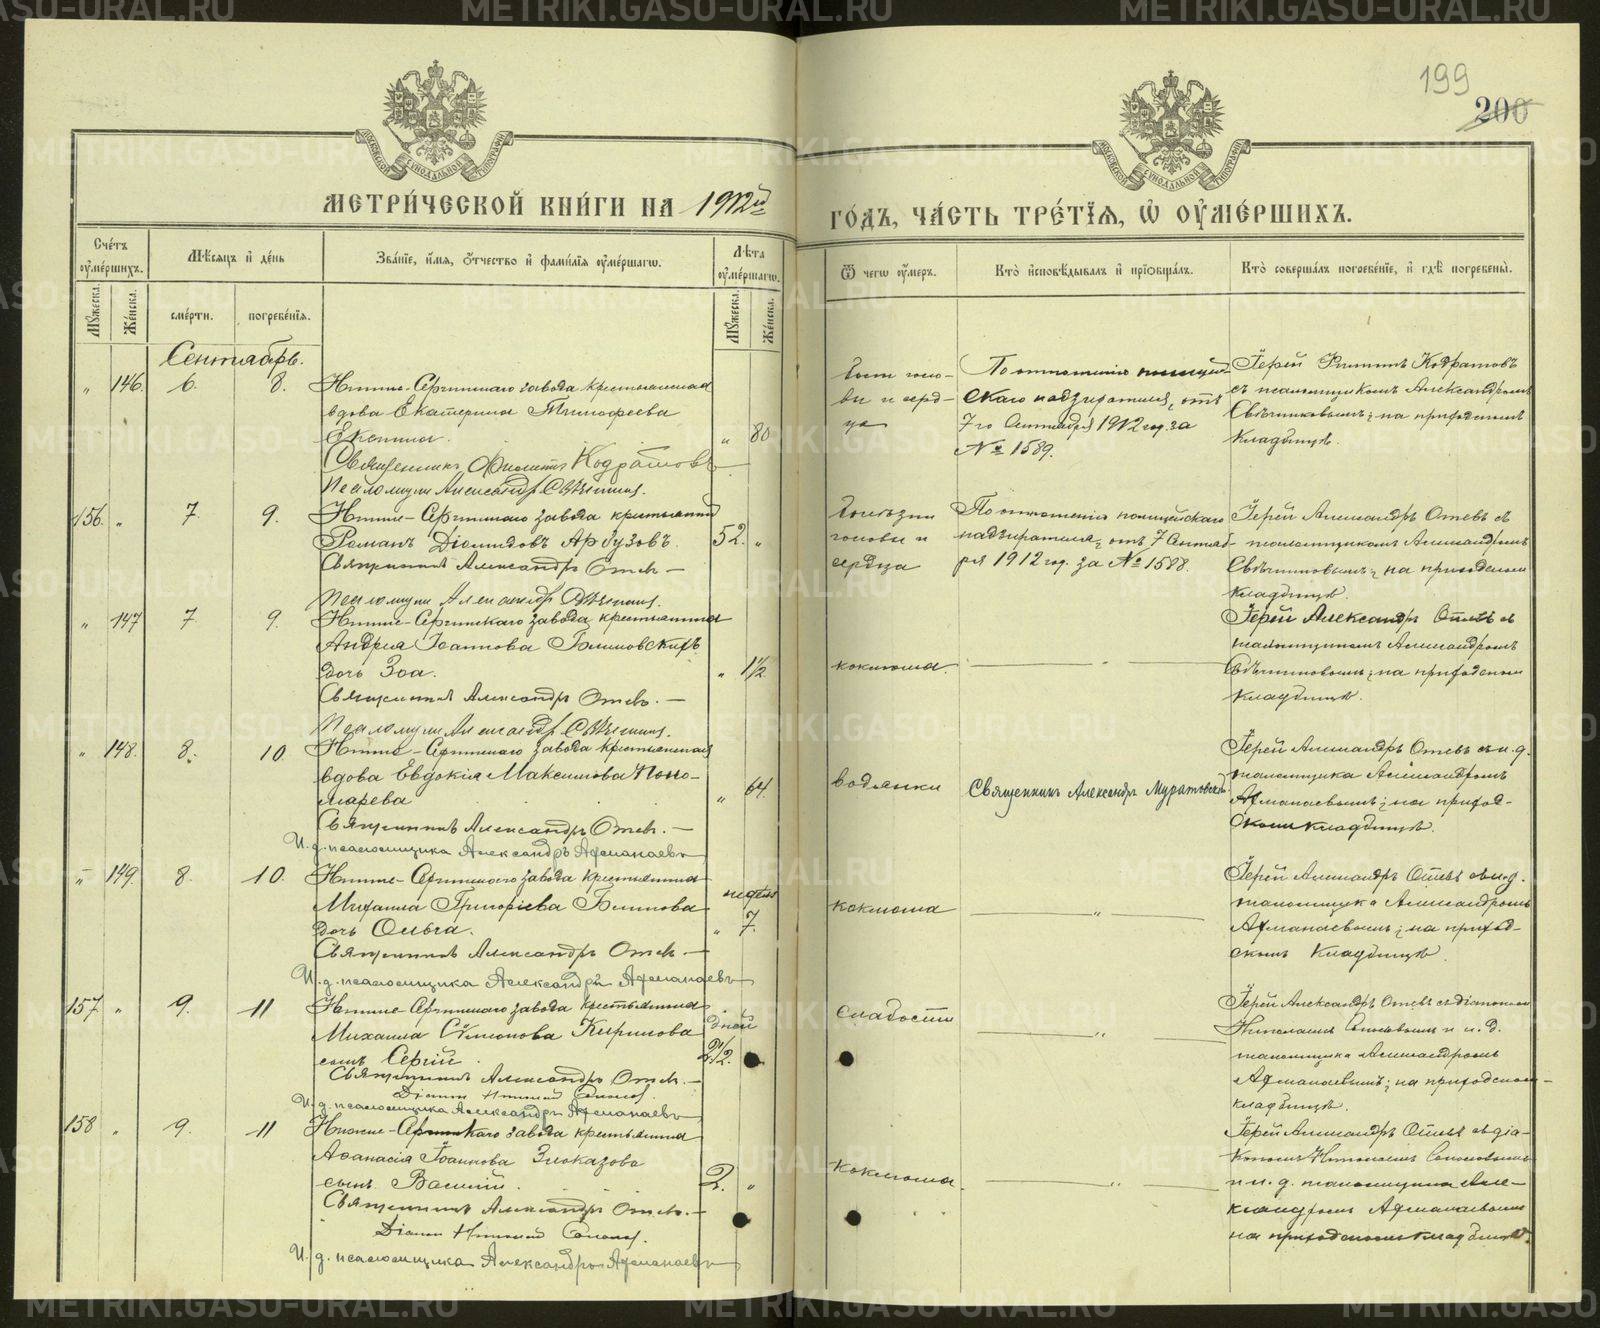 199
200
МЕТРИ́ЧЕСКОЙ КНИ́ГИ НА 1912й
ГО́ДЪ, ЧА́СТЬ ТРЕ́ТІѦ, Ѡ҆ ОУ҆МЕ́РШИХЪ.
Сче́тъ оу҆ме́ршихъ.
Мѣ́сяцъ и҆ де́нь
Зва́ніе, и҆́мя, ѻ҆́тчество и҆ фами́лія оу҆ме́ршагѡ.
Лѣ́та оу҆ме́ршагѡ.
Ѿ чегѡ̀ оу҆́меръ.
Кто̀ и҆сповѣ́дывалъ и҆ прїѡбща́лъ.
Кто̀ соверша́лъ погребе́нїе, и҆ гдѣ̀ погребены̀.
Му́жеска.
Же́нска.
сме́рти.
погребе́нїя.
Му́жеска.
Же́нска.
Сентябрь.
" 146. 6. 8.
Нижне-Сергинскаго завода крестьянская
вдова Екатерина Тимофеева
" 80
Священникъ Филиппъ Кодратовъ
Псаломщик Александр Свѣчников.
По отношенію полицей-
скаго надзирателя, отъ
7го Сентября 1912 год. за
№ 1589.
Іерей Филиппъ Кодратовъ
съ псаломщикомъ Александромъ
Свѣчниковымъ; на приходскомъ
кладбищѣ.
156. " 7 9.
Нижне-Сергинскаго завода крестьянинъ
Романъ Діомидовъ Арбузовъ. 52. "
Священникъ Александръ Отев. —
Псаломщик Александр Свѣчников.
болѣзни
головы и
сердца
По отношенію полицейскаго
надзирателя, отъ 7 Сентяб-
ря 1912 год. за № 1588.
Іерей Александръ Отевъ съ
псаломщикомъ Александромъ
Свѣчниковымъ; на приходскомъ
кладбищѣ.
" 147 7 9.
Нижне-Сергинскаго завода крестьянина
Андрея Іоаннова Голиковскихъ
дочь Зоа. " 1½
Священникъ Александръ Отев. —
Псаломщик Александр Свѣчников.
коклюша.
Іерей Александръ Отевъ съ
псаломщикомъ Александромъ
Свѣчниковымъ; на приходскомъ
кладбищѣ.
" 148. 8. 10.
Нижне-Сергинскаго завода крестьянская
вдова Евдокія Максимова Поно-
марева " 64.
Священникъ Александръ Отев. —
И. д. псаломщика Александръ Афманаевъ
водянки
Священникъ Александръ Муратовскій
Іерей Александръ Отевъ съ и. д.
псаломщика Александромъ
Афманаевымъ; на приход-
скомъ кладбищѣ.
" 149. 8. 10.
Нижне-Сергинскаго завода крестьянина
Михаила Григоріева Блинова
дочь Ольга.
недѣль
" 7.
Священникъ Александръ Отев. —
И. д. псаломщика Александръ Афманаевъ
коклюша
Іерей Александръ Отевъ съ и. д.
псаломщика Александромъ
Афманаевымъ; на приход-
скомъ кладбищѣ.
157 " 9. 11
Нижне-Сергинскаго завода крестьянина
Михаила Сѵмеонова Кирилова
сынъ Сергій.
дней
2½.
Священникъ Александръ Отев. —
Діакон Николай
И. д. псаломщика Александръ Афманаевъ
слабости
Іерей Александръ Отевъ съ діакономъ
Николаемъ и и. д.
псаломщика Александромъ
Афманаевымъ; на приходскомъ
кладбищѣ.
158 " 9. 11
Нижне-Сергинскаго завода крестьянина
Аѳанасія Іоаннова Злоказова
сынъ Василій. 2. "
Священникъ Александръ Отев. —
Діакон Николай
И. д. псаломщика Александръ Афманаевъ
коклюша.
Іерей Александръ Отевъ съ діа-
кономъ Николаемъ
и и. д. псаломщика Алек-
сандромъ Афманаевымъ
на приходскомъ кладбищѣ.
METRIKI.GASO-URAL.RU